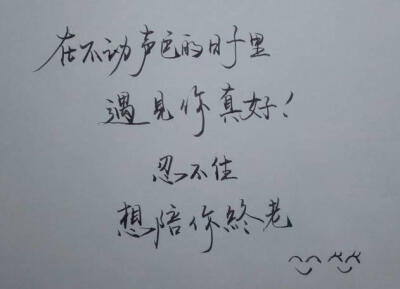 在不动声色的日子里
遇見你真好！
忍不住
想陪你終老